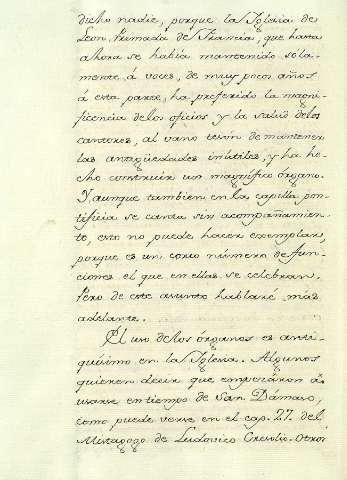 dicho nadie, porque la Iglesia de
Leon, Primada de Francia, que hasta
ahora se habia mantenido sola-
mente à voces, de muy pocos años
à esta parte, ha preferido la magni-
ficencia de los oficios y la salud de los
cantores, al vano teson de mantener
las antigüedades inútiles, y ha he-
cho construir un magnifico órgano.
Y aunque tambien en la capilla pon-
tificia se canta sin acompañamien-
to, esto no puede hacer exemplar,
porque es un corto número de fun-
ciones el que en ellas se celebran.
Pero de este asunto hablaré mas
adelante.
El uso de los órganos es anti-
quisimo en la Iglesia. Algunos
quieren decir que empezáron à
usarse en tiempo de San Dámaso,
como puede verse en el cap. 27. del
Mistagogo de Ludovico Cresolio. Otros